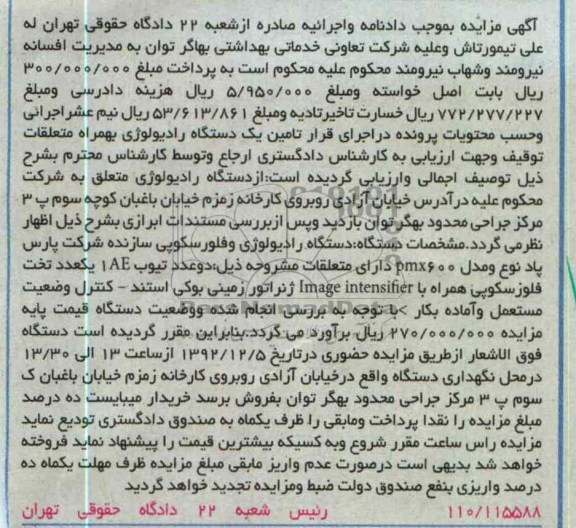 آگهی مزایده بموجب دادنامه واجرائیه صادره ازشعبه ۲۲ دادگاه حقوقی تهران له
علی تیمورتاش وعلیه شرکت تعاونی خدماتی بهداشتی بهاگر توان به مدیریت افسانه
نیرومند وشهاب نیرومند محکوم علیه محکوم است به پرداخت مبلغ ۳۰۰/۰۰۰/۰۰۰
ریال بابت اصل خواسته ومبلغ ۵/۹۵۰/۰۰۰ ریال هزینه دادرسی ومبلغ
۷۷۲/۲۷۷/۲۲۷ ریال خسارت تاخیرتادیه ومبلغ ۵۳/۶۱۳/۸۶۱ ریال نیم عشراجرائی
وحسب محتویات پرونده دراجرای قرار تامین یک دستگاه رادیولوژی بهمراه متعلقات
توقیف وجهت ارزیابی به کارشناس دادگستری ارجاع وتوسط کارشناس محترم بشرح
ذیل توصیف اجمالی وارزیابی گردیده است:ازدستگاه رادیولوژی متعلق به شرکت
محکوم علیه درآدرس خیابان آزادی روبروی کارخانه زمزم خیابان باغبان کوچه سوم پ ۳
مرکز جراحی محدود بهگر توان بازدید وپس ازبررسی مستندات ابرازی بشرح ذیل اظهار
نظرمی گردد.مشخصات دستگاه:دستگاه رادیولوژی وفلورسکوپی سازنده شرکت پارس
پاد نوع ومدل pmx۶۰۰ دارای متعلقات مشروحه ذیل:دوعدد تیوب ۱AE یکعدد تخت
فلوزسکوپی همراه با Image intensifier ژنراتور زمینی بوکی استند – کنترل وضعیت
مستعمل وآماده بکار >با توجه به بررسی انجام شده ووضعیت دستگاه قیمت پایه
مزایده ۲۷۰/۰۰۰/۰۰۰ ریال برآورد می گردد.بنابراین مقرر گردیده است دستگاه
فوق الاشعار ازطریق مزایده حضوری درتاریخ ۱۳۹۲/۱۲/۵ ازساعت ۱۳ الی ۱۳/۳۰
درمحل نگهداری دستگاه واقع درخیابان آزادی روبروی کارخانه زمزم خیابان باغبان ک
سوم پ ۳ مرکز جراحی محدود بهگر توان بفروش برسد خریدار میبایست ده درصد
مبلغ مزایده را نقدا پرداخت ومابقی را ظرف یکماه به صندوق دادگستری تودیع نماید
مزایده راس ساعت مقرر شروع وبه کسیکه بیشترین قیمت را پیشنهاد نماید فروخته
خواهد شد بدیهی است درصورت عدم واریز مابقی مبلغ مزایده ظرف مهلت یکماه ده
درصد واریزی بنفع صندوق دولت ضبط ومزایده تجدید خواهد گردید
۱۱۰/۱۱۵۵۸۸ رئیس شعبه ۲۲ دادگاه حقوقی تهران